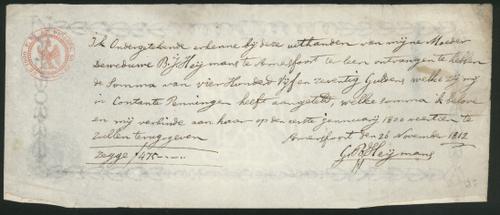 Ik Ondergetekende erkenne bij deze uithanden van mijne Moeder
de weduwe B:J: Heijmans te Amersfoort te leen ontvangen te hebben
de Somma van vier Honderd Vijf en Zeventig Guldens welke zij mij
in Contante Penningen heeft aangeteld, welke somma ik belove
en mij verbinde aan haar op den eerste januarij 1800 veertien te
zullen teruggeven
Amersfoort den 26 November 1812
Zegge f 475-
Heijmans